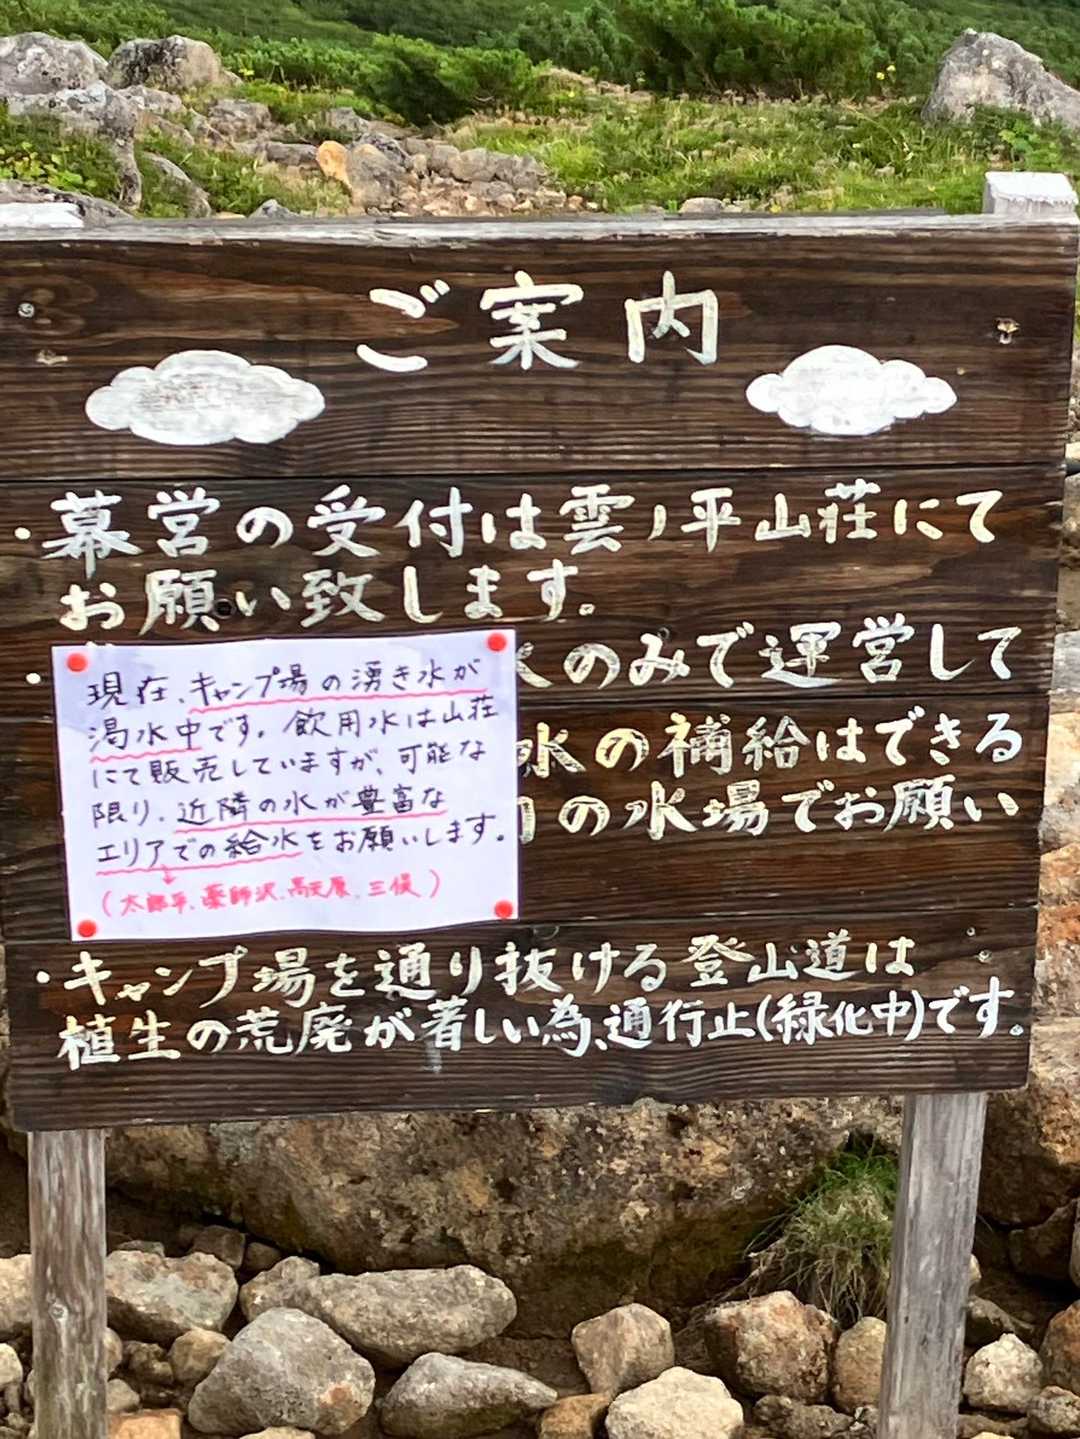 ご案内
・幕営の受付は雲ノ平山荘にて
お願い致します。
・
水のみで運営して
水の補給はできる
の水場でお願い
現在、キャンプ場の湧き水が
渇水中です。飲用水は山荘
にて販売していますが、可能な
限り、近隣の水が豊富な
エリアでの給水をお願いします。
(太郎平、薬師沢、高天原、三俣)
・キャンプ場を通り抜ける登山道は
植生の荒廃が著しい為、通行止(緑化中)です。